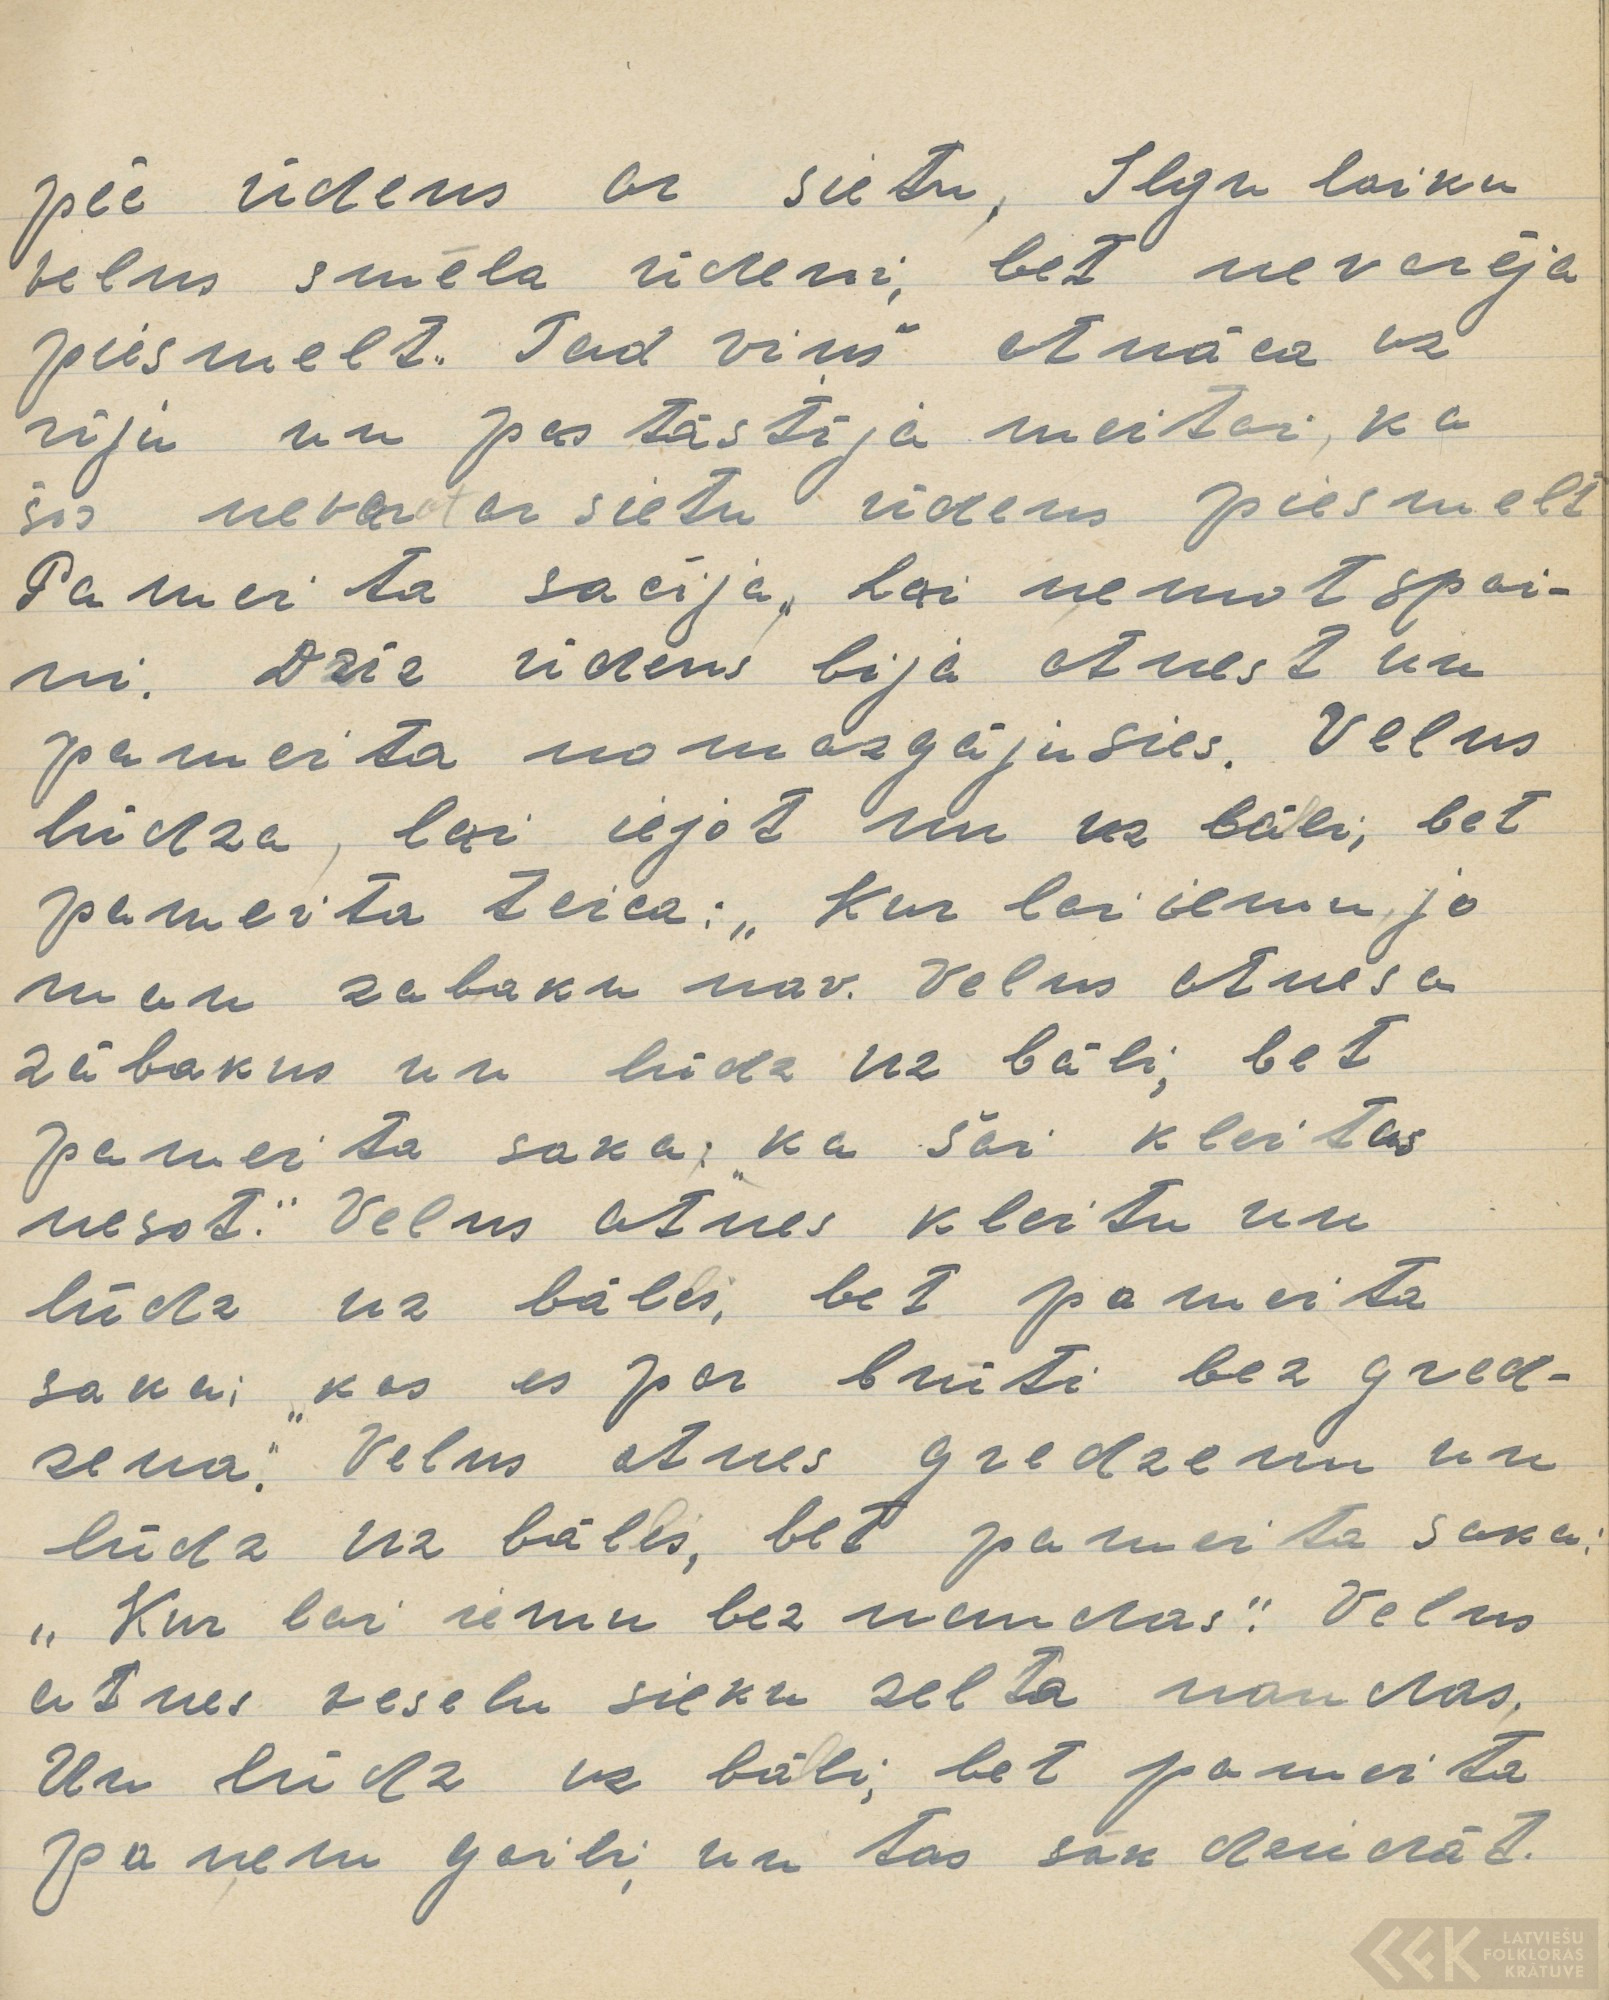 pēc ūdens ar sietu, Ilgu laiku
velns smēla ūdeni, bet nevarēja
piesmelt. Tad viņš atnāca uz
riju un pastāstīja meitai, ka
šis nevar ar sietu ūdens piesmelt
Pameita sacīja, Lai ņemot spai-
ni. Drīz ūdens bija atnest un
pameita nomazgājusies. Velns
lūdza, lai iejot nu uz balli, bet
pameita teica: „Kur lai iemu, jo
man zabaku nav. Velns atnesa
zābakus un lūdz uz bāli, bet
pameita saka: „ka šai kleitas
nesot." Velns atnes kleitu un
lūdz uz bālli, bet pameita
saka; „kas es par brūti bez gred-
zena." Velns atnes gredzenu un
lūdz uz bālli, bet pameita saka:
„Kur lai iemu bez naudas". Velns
atnes veselu sieku zelta naudas.
Un lūdz uz balli, bet pameita
paņem gaili, un tas sāk dziedāt.
LATVIEŠU
FOLKLORAS
KRĀTUVE